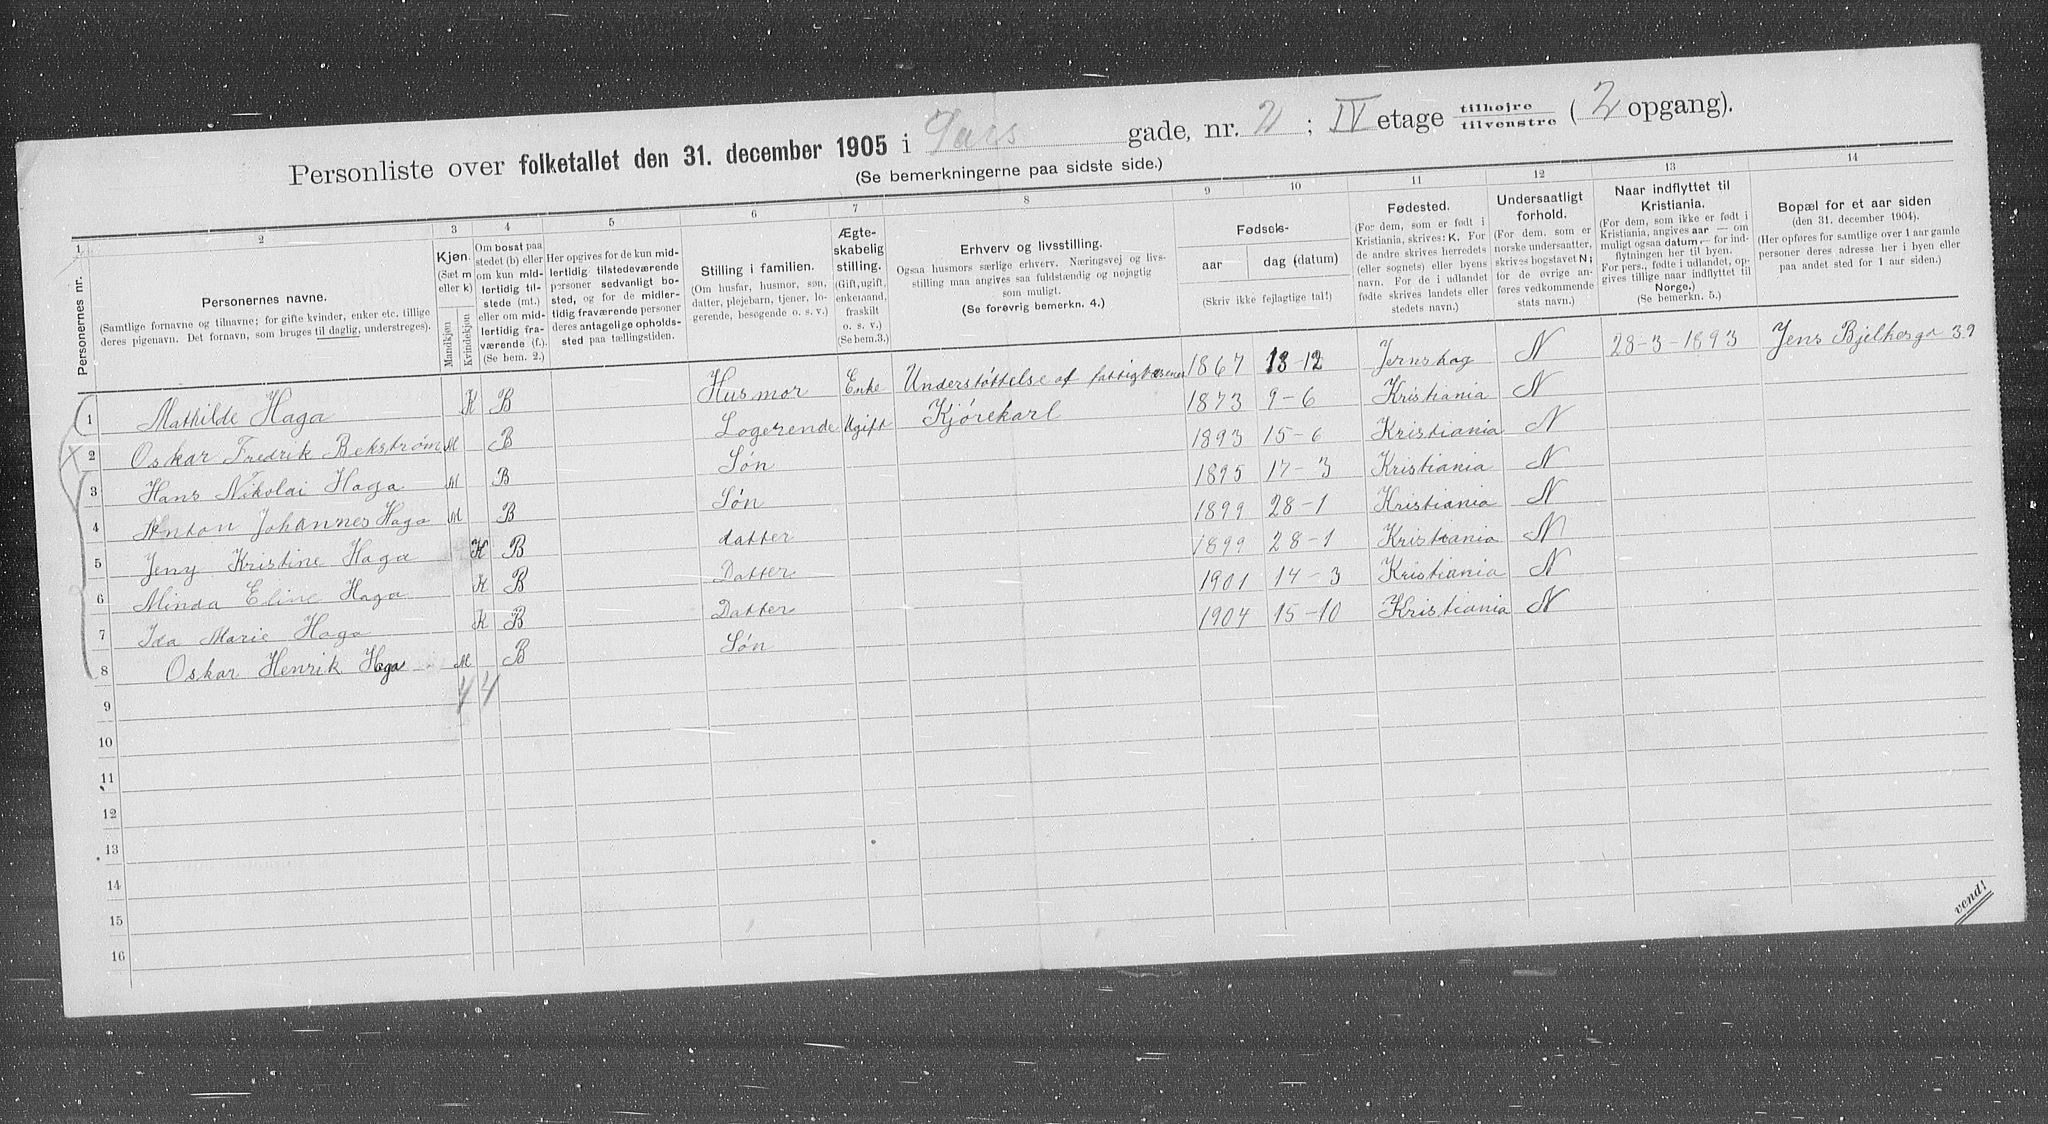 Personliste over folketallet den 31. december 1905 i gade, nr. 2 ; IV etage tilhøjre tilvenstre ( 2 opgang).
(Se bemerkningerne paa sidste side.)
1 2 3 4 5 6 7 8 9 10 11 12 13 14
Personernes nr.
Personernes navne.
(Samtlige fornavne og tilnavne; for gifte kvinder, enker etc. tillige deres pigenavn. Det fornavn, som bruges til daglig, understreges).
Kjøn.
(Sæt m eller k)
Mandkjøn
Kvindekjøn
Om bosat paa stedet (b) eller om kun midlertidig tilstede (mt.) eller om midlertidig fraværende (f.). (Se bem. 2.)
Her opgives for de kun midlertidig tilstedeværende personer sedvanligt bosted, og for de midlertidig fraværende personer deres antagelige opholdssted paa tællingstiden.
Stilling i familien.
(Om husfar, husmor, søn, datter, plejebarn, tjener, logerende, besøgende o. s. v.)
Ægteskabelig stilling.
(Gift, ugift, enkemand, fraskilt o. s. v.)
(Se bem. 3.)
Erhverv og livsstilling.
Ogsaa husmors særlige erhverv. Næringsvej og livsstilling maa angives saa fuldstændig og nøjagtig som muligt.
(Se forøvrig bemerkn. 4.)
Fødsels-
aar
dag (datum)
(Skriv ikke fejlagtige tal!)
Fødested.
(For dem, som er født i Kristiania, skrives: K. For de andre skrives herredets (eller sognets) eller byens navn. For de i udlandet fødte skrives landets eller stedets navn.)
Undersaatligt forhold.
(For dem, som er norske undersaatter, skrives bogstavet N; for de øvrige anføres vedkommende stats navn.)
Naar indflyttet til Kristiania.
(For dem, som ikke er født i Kristiania, angives aar — om muligt ogsaa datum — for indflytningen her til byen. For pers., fødte i udlandet, opgives tillige naar indflyttet til Norge.)
(Se bemerkn. 5.)
Bopæl for et aar siden
(den 31. december 1904).
(Her opføres for samtlige over 1 aar gamle personer deres adresse her i byen eller paa andet sted for 1 aar siden.)
1 Mathilde Haga K B Husmor Enke Understøttelse af fattigvæsenet 1867 13-12 Jernskog N 28-3-1893 Jens Bjelkesga 39
2 Oskar Fredrik Bekstrøm M B Logerende Ugift Kjørekarl 1873 9-6 Kristiania N
3 Hans Nikolai Haga M B Søn 1893 15-6 Kristiania N
4 Anton Johannes Haga M B Søn 1895 17-3 Kristiania N
5 Jeny Kristine Haga K B datter 1899 28-1 Kristiania N
6 Minda Eline Haga K B Datter 1899 28-1 Kristiania N
7 Ida Marie Haga K B Datter 1901 14-3 Kristiania N
8 Oskar Henrik Haga M B Søn 1904 15-10 Kristiania N
4 4
9
10
11
12
13
14
15
16
vend!